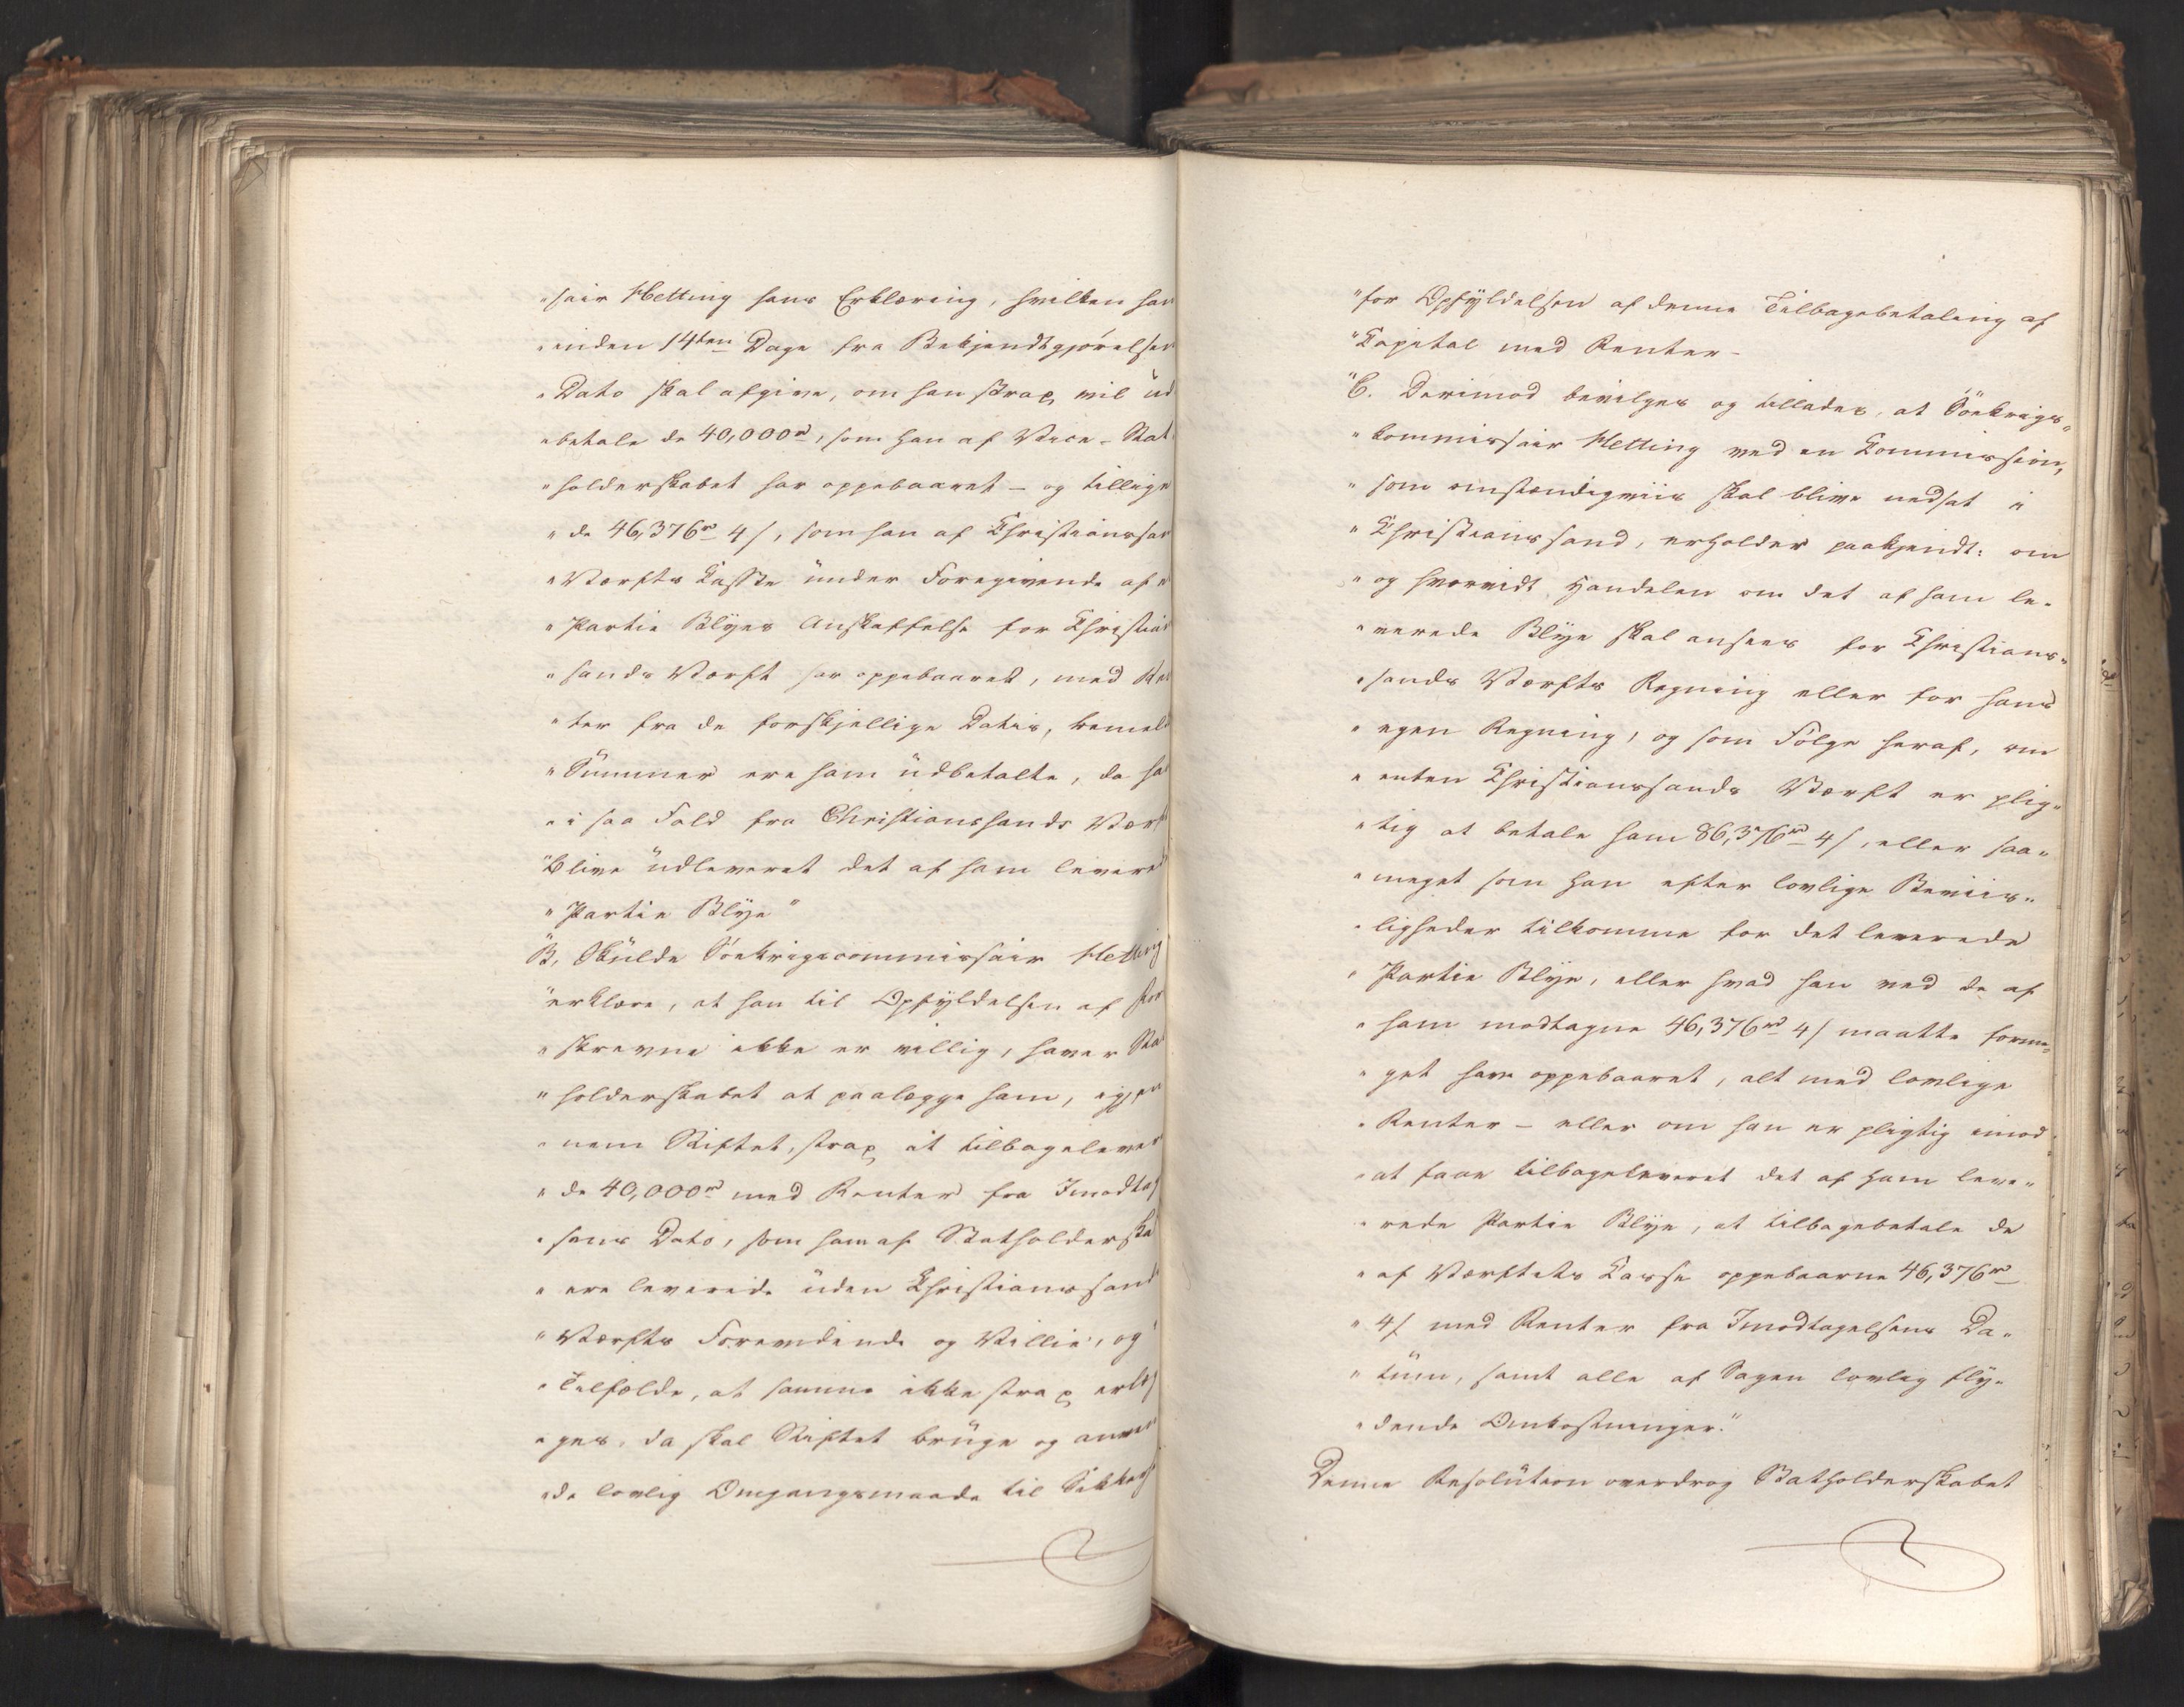 "sair Hetting hans Erklæring, hvilken han
"inden 14ten Dage fra Bekjendtgjørelsen
"Dato skal afgive, om han strax vil ud
"betale de 40,000rd, som han af Vice-Stat
"holderskabet har oppebaaret - og tillige
"de 46,376rd 4/, som han af Christianssan
"Værfts Kasse under Foregivende af e
"Partie Blyes Anskaffelse for Christian
"sands Værft har oppebaaret, med Ren
"ter fra de forskjellige Datis, bemeld
"Summer ere ham udbetalte, da ha
"i saa Fald fra Christianssands Værf
"blive udleveret det af ham levered
"Partie Blye"
"B, Skulde Söekrigscommissair Hetting
"erklære, at han til Opfyldelsen af for
"skrevne ikke er villig, haver Sta
"holderskabet at paalægge ham, igjen
"nem Stiftet, strax at tilbagelever
"de 40,000rd med Renter fra Imodtag
"sens Dato, som ham af Statholderska
"ere leverede uden Christianssand
"Værfts Foravidende og Villie, og
"Tilfælde, at samme ikke strax erlæg
"ges, da skal Stiftet bruge og anven
"de lovlig Omgangsmaade til Sikkerh
"for Opfyldelsen af denne Tilbagebetaling af
"Kapital med Renter -
"C. Derimod bevilges og tillades, at Söekrigs"
"kommissair Hetting ved en Kommission,
"som omstændigviis skal blive nedsat i
"Christianssand, erholder paakjendt: om
"og hvorvidt Handelen om det af ham le"
"verede Blye skal ansees for Christians"
"sands Værfts Regning eller for hans
"egen Regning, og som Følge heraf, om
"enten Christianssands Værft er plig"
"tig at betale ham 86,376rd 4/, eller saa"
"meget som han efter lovlige Beviis"
"ligheder tilkomme for det leverede
"Partie Blye, eller hvad han ved de af
"ham modtagne 46,376rd 4/ maatte forme"
"get have oppebaaret, alt med lovlige
"Renter - eller om han er pligtig imod
"at faae tilbageleveret det af ham leve"
"rede Partie Blye, at tilbagebetale de
"af Værftets Casse oppebaarne 46,376rd
"4/ med Renter fra Imodtagelsens Da"
"tum, samt alle af Sagen lovlig fly"
"dende Omkostninger."
Denne Resolution overdrog Statholderskabet